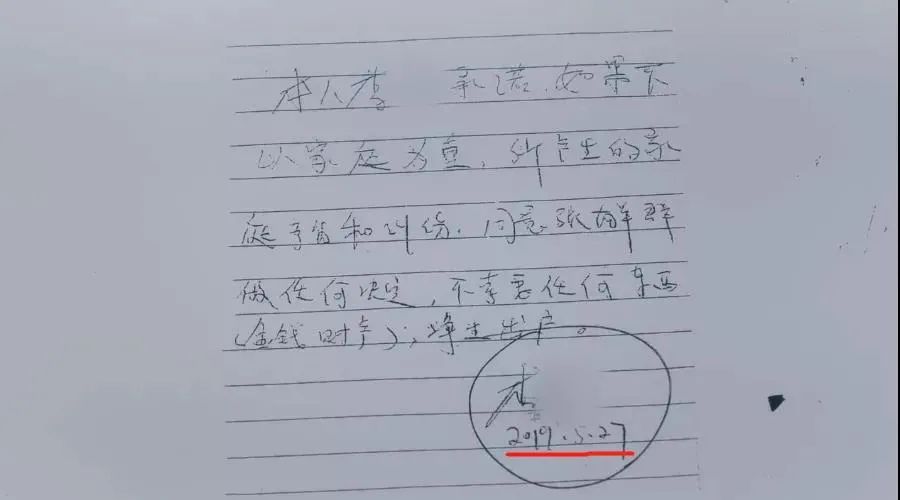 本人李 承诺,如果不
以家庭为重,所产生的家
庭矛盾和纠纷,同意张群群
做任何决定,不索要任何东西
(金钱财产),净身出户。
李
2019.5.27